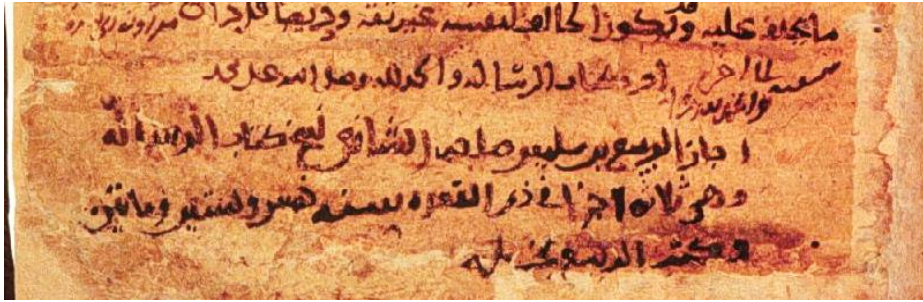 ما يخلف عليه وقد يكون الحالف لنفسه غير ثقة وحريصا فاجرا
اخر كتاب الرسالة والحمد لله وصلى الله على محمد
اجاز الربيع بن سليمن صاحب الشافعي نسخ كتاب الرسالة
وهي ثلثة اجزا في ذي القعدة سنة خمس وستين ومائتين
وكتب الربيع بخطه